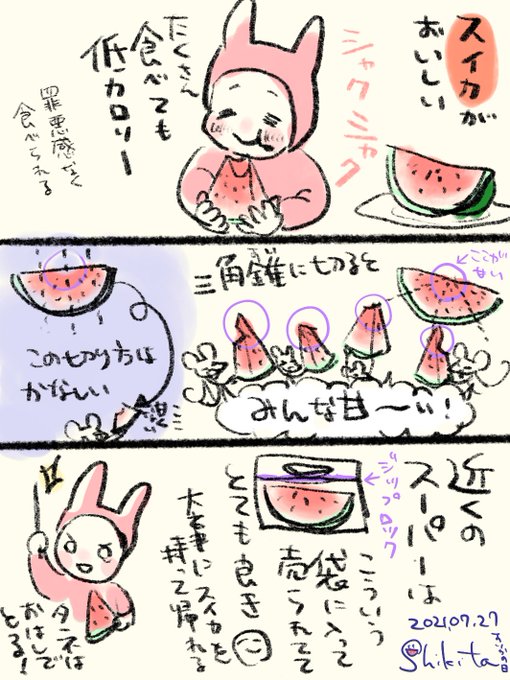 スイカが
おいしい
シャクシャク
たくさん
食べても
低カロリー
罪悪感なく
食べられる
三角錐に切ると
ここが
甘い
みんな甘〜い!
この切り方は
かなしい
近くの
スーパーは
ジップロック
こういう
袋に入って
売られてて
とても良き
大事にスイカを
持って帰れる
タネは
おはしで
とる!
2021,07.27
スイカの日
Shikita